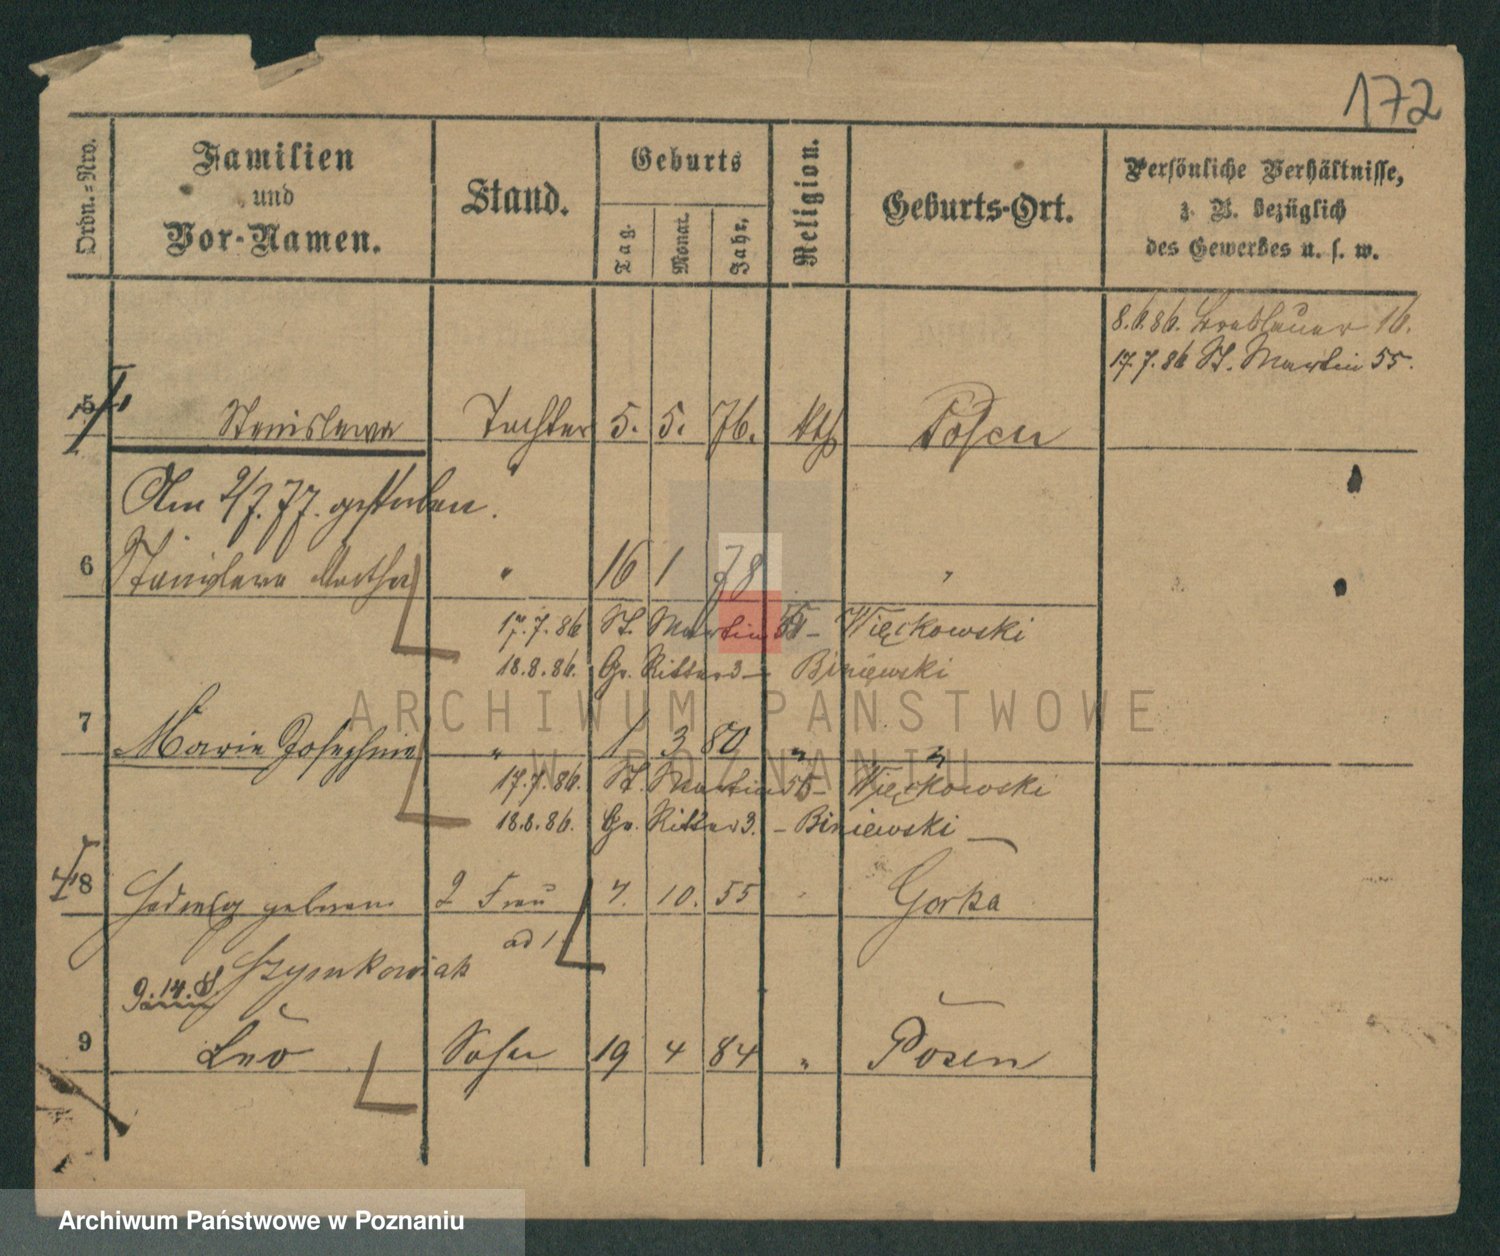 172
Ordn.=Nro.
Familien
und
Vor-Namen.
Stand.
Geburts
Tag.
Monat.
Jahr.
Religion.
Geburts-Ort.
Persönliche Verhältnisse,
z. B. bezüglich
des Gewerbes u. s. w.
8.6.86. Breslauer 16.
17.7.86 St. Martin 55.
5 Stanislawa Tochter 5. 5. 76. kth Posen
Am 2/7.77. gestorben.
6 Stanislawa Martha " 16 1 78 "
17.7.86 St. Martin 55 – Więckowski
18.8.86. Gr. Ritter 3 – Biniewski
7 Marie Josephine " 1 3 80 " "
17.7.86. St. Martin 55 – Więckowski
18.8.86. Gr. Ritter 3. – Biniewski
8 Hedwig geborene 2 Frau 7. 10. 55 " Gorka
ad 1.
Szymkowiak
9.14.
9 Leo Sohn 19 4 84 " Posen
ARCHIWUM PAŃSTWOWE
W POZNANIU
Archiwum Państwowe w Poznaniu